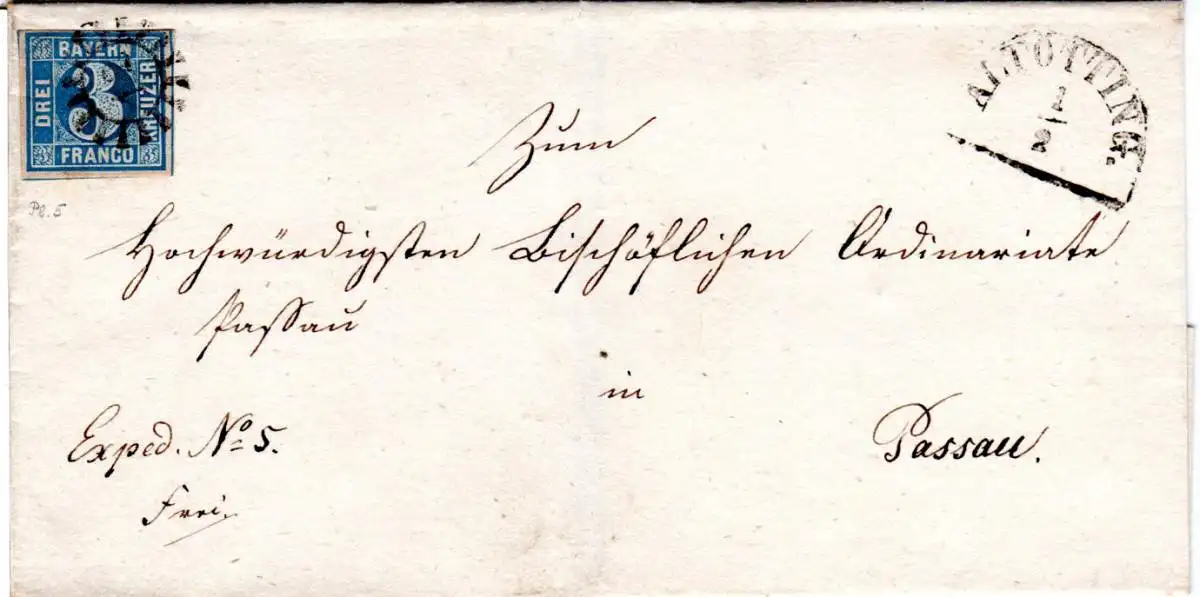 BAYERN
DREI 3 KREUZER
FRANCO
Pl. 5
ALTÖTTING.
2
2
Zum
Hochwürdigsten Bischöflichen Ordinariate
Passau
in
Exped. No 5.
Passau.
Frei